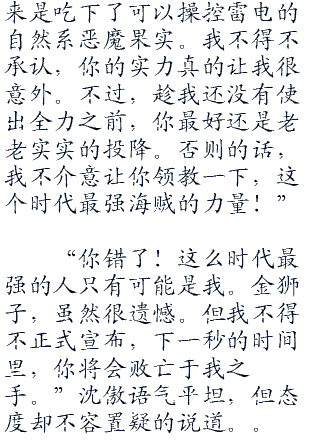 来是吃下了可以操控雷电的
自然系恶魔果实。我不得不
承认，你的实力真的让我很
意外。不过，趁我还没有使
出全力之前，你最好还是老
老实实的投降。否则的话，
我不介意让你领教一下，这
个时代最强海贼的力量！”
“你错了！这么时代最
强的人只有可能是我。金狮
子，虽然很遗憾。但我不得
不正式宣布，下一秒的时间
里，你将会败亡于我之
手。”沈傲语气平坦，但态
度却不容置疑的说道。。